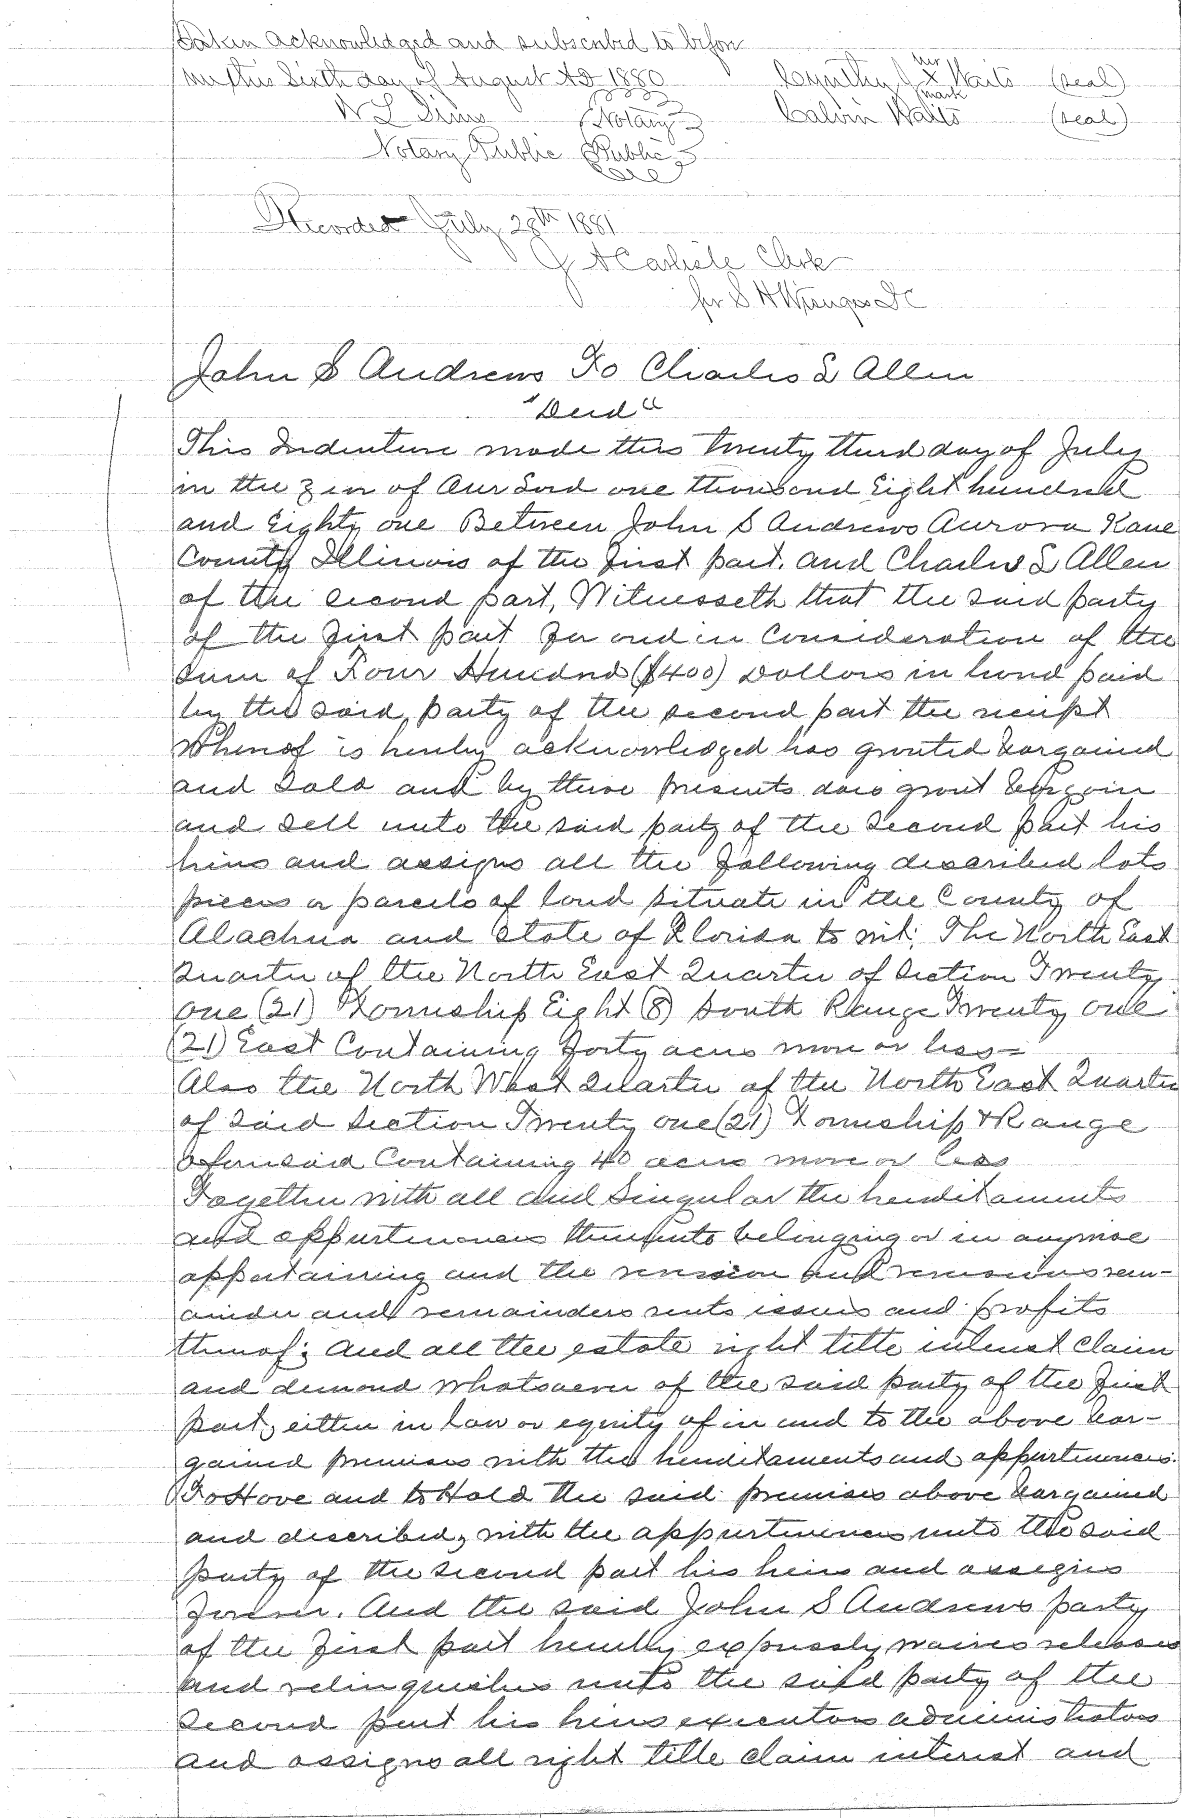 Taken acknowledged and subscribed to before
me this Sixth day of August AD 1880
Cynthy J her x mark Waits (seal)
W L Sims
Notary Public
(Notary Public
Calvin Waits (seal)
Recorded July 28th 1881
J A Carlisle Clerk
for S H Wienges DC
John S Andrews To Charles L Allen
"Deed"
This Indenture made this twenty third day of July
in the year of Our Lord one thousand Eight hundred
and Eighty one Between John S Andrews Aurora Kane
County Illinois of the first part. and Charles L Allen
of the second part, Witnesseth that the said party
of the first part for and in Consideration of the
sum of Four Hundred ($400) Dollars in hand paid
by the said party of the second part the receipt
whereof is hereby acknowledged has granted bargained
and sold and by these presents does grant bargain
and sell unto the said party of the second part his
heirs and assigns all the following described lots
pieces or parcels of land situate in the County of
Alachua and State of Florida to wit; The North East
Quarter of the North East Quarter of Section Twenty
one (21) Township Eight (8) South Range Twenty one
(21) East Containing forty acres more or less=
Also the North West Quarter of the North East Quarter
of said Section Twenty one (21) Township & Range
aforesaid Containing 40 acres more or less
Together with all and Singular the hereditaments
and appurtenances thereunto belonging or in anywise
appertaining and the reversion and reversions rem-
ainder and remainders rents issues and profits
thereof; and all the estate right title interest claim
and demand whatsoever of the said party of the first
part, either in law or equity of in and to the above bar-
gained premises with the hereditaments and appurtenances:
To Have and to Hold the said premises above bargained
and described, with the appurtenances unto the said
party of the second part his heirs and assigns
forever. And the said John S Andrews party
of the first part hereby expressly waives releases
and relinquishes unto the said party of the
second part his heirs executors administrators
and assigns all right title claim interest and